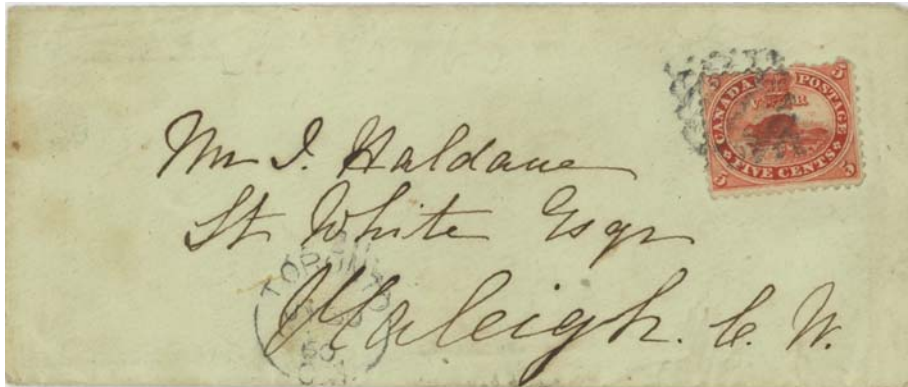 CANADA POSTAGE
5 5
5 5
FIVE CENTS
Mr I. Haldane
St White Esqr
Raleigh. C. W.
TORONTO